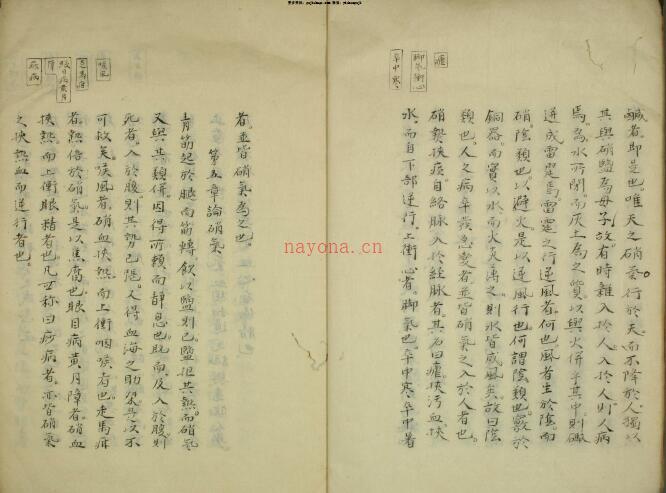 鹹者即是也唯天之硝氣行於天而不降於人獨以
其與硝鹽為母子故有時雜入於人入於人則人病
焉為水所閉而灰土為之質以與火併乎其中則
遂成雷霆焉雷霆之行逆風者何也風者生於陰而
硝陰類也以避火是以逆風行也何謂陰類也
銅器而實以水而火炎薄之則水皆成風矣故曰陰
類也人之病卒發急變者並皆硝氣之入於人者也
硝氣挾痰自絡脉入於經脉者其名曰瘧挾汚血挾
水而自下部逆行上衝心者脚氣也卒中寒卒中暑
瘧
脚氣衝心
卒中寒
者並皆硝氣為之也
第五章論硝氣
青筋起於腿而筋轉飲以鹽則已鹽拒其熱而硝氣
又與其類併因得所賴而靜息也既而及入於腹則
死者入於腹則其勢已隱人得血海之助
可救矣喉風者硝血挾熱而上衝咽喉者也走馬疳
者熱倍於硝氣是以焦腐也眼目病黄月障者硝血
挾熱而上衝眼睛者也凡世称曰痧病者亦皆硝氣
之挾熱血而逆行者也
喉風
走馬疳
眼目病黄月
障
痧病
nayona.cn